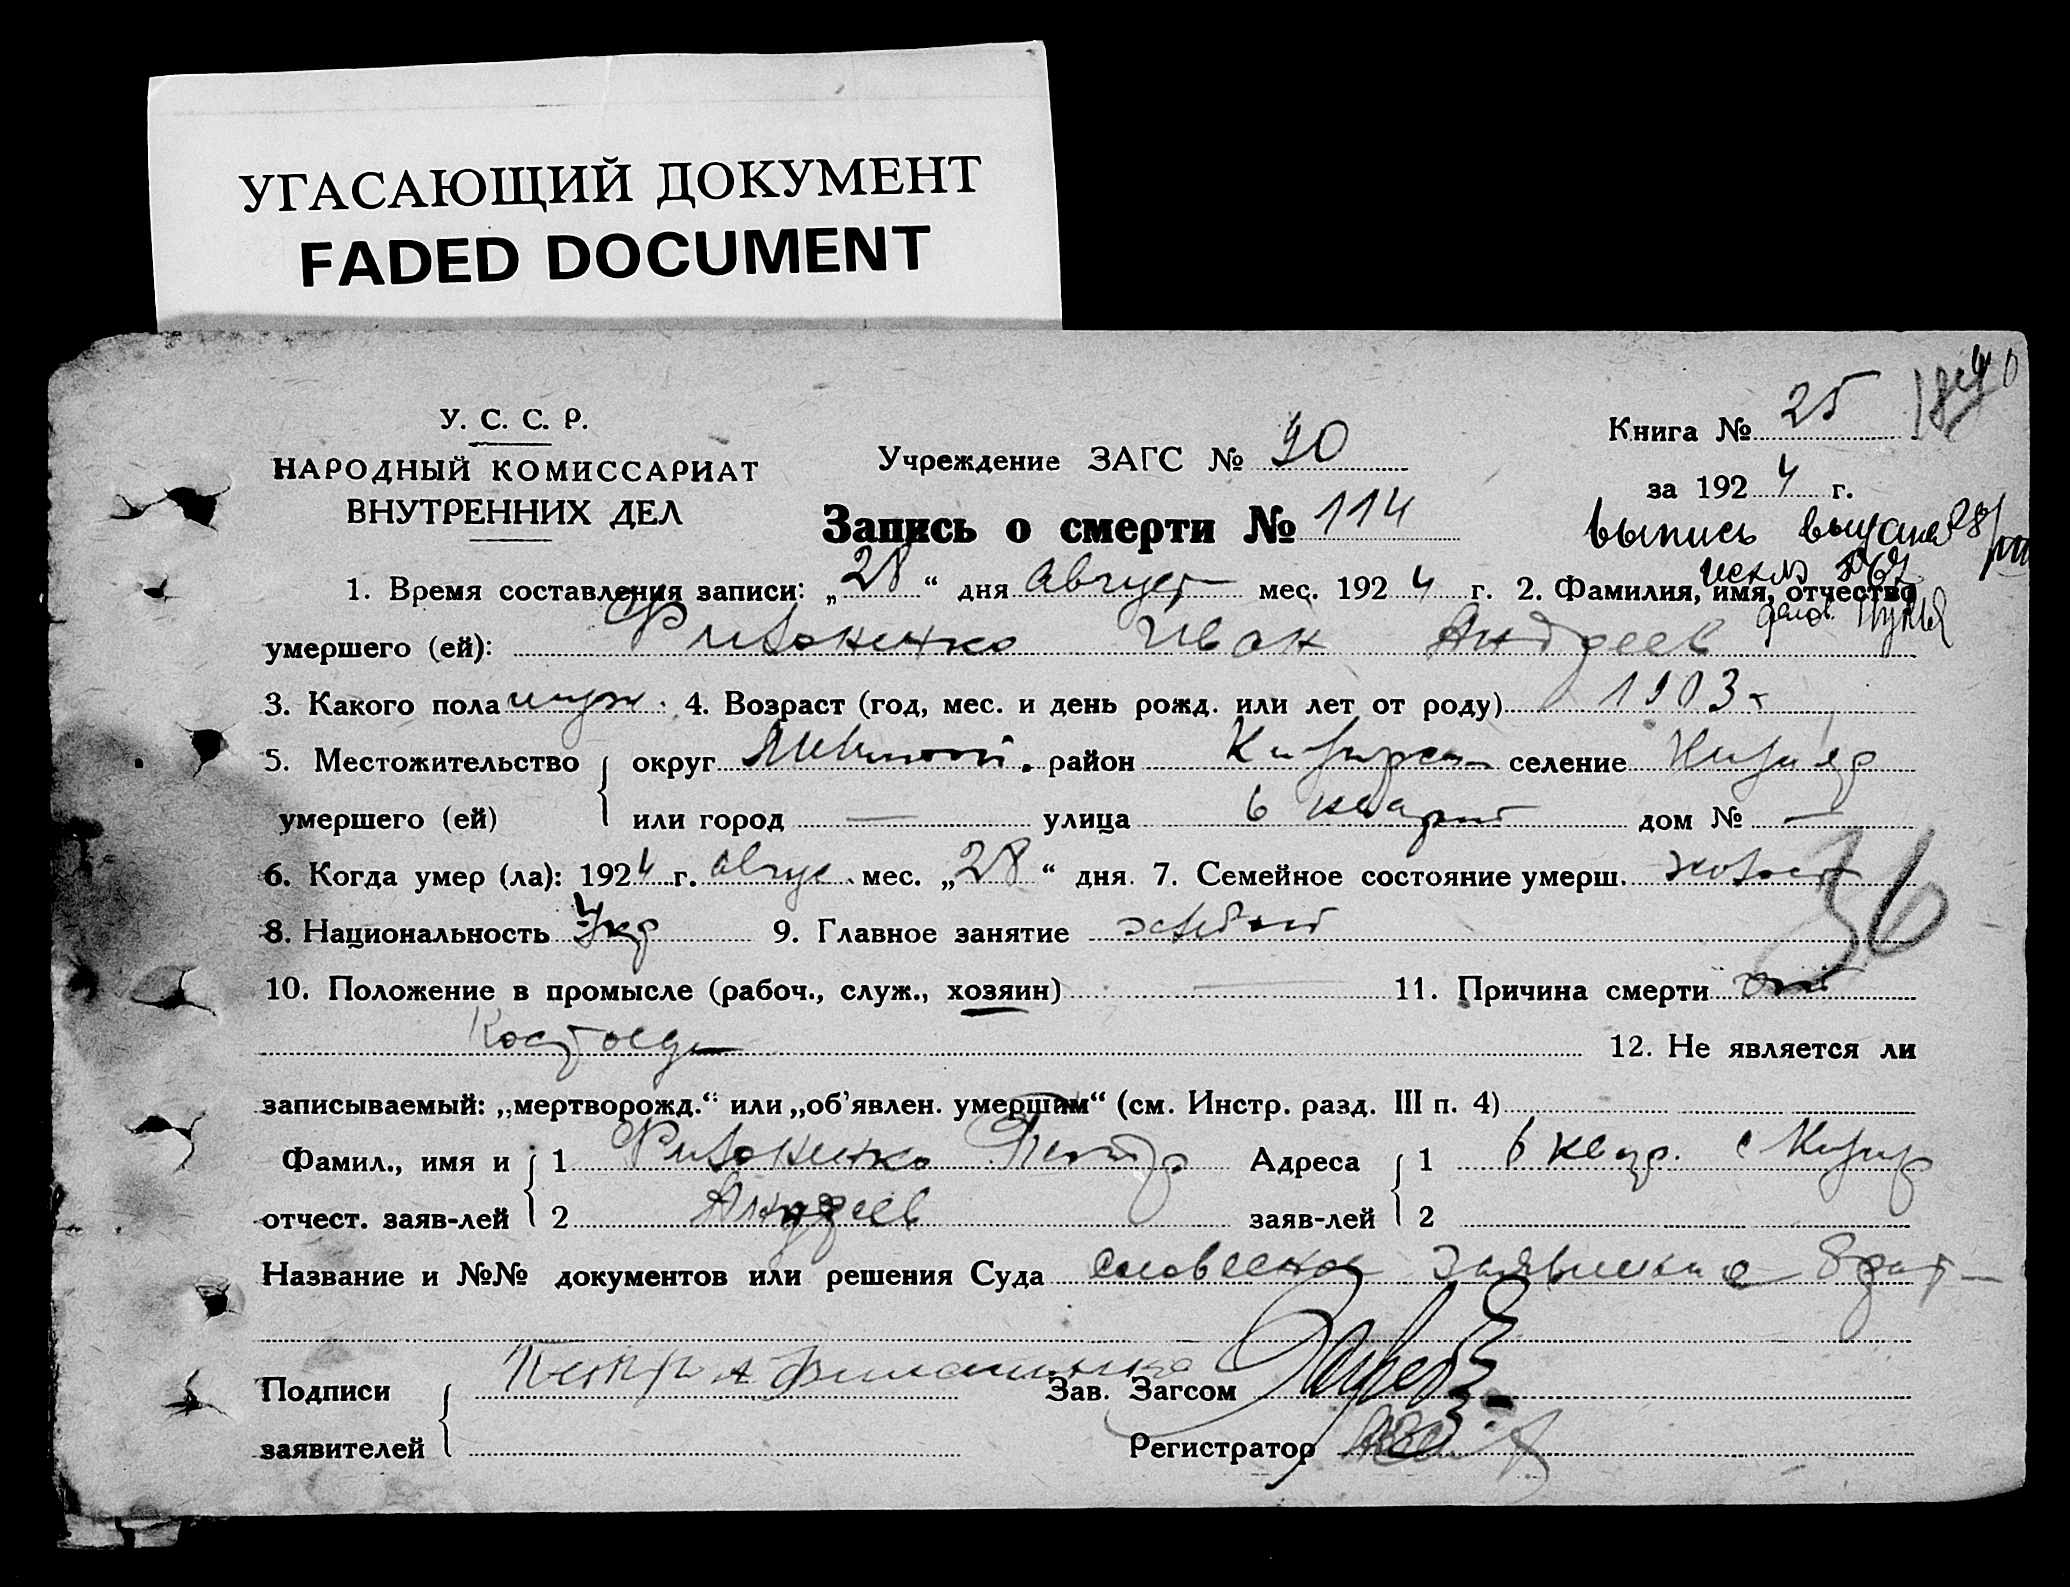 УГАСАЮЩИЙ ДОКУМЕНТ
FADED DOCUMENT
У. С. С. Р.
НАРОДНЫЙ КОМИССАРИАТ
ВНУТРЕННИХ ДЕЛ
Учреждение ЗАГС №
Запись о смерти № 114
Книга № 25
за 1924 г.
выпись выдана
1. Время составления записи: „28“ дня Август мес. 1924 г. 2. Фамилия, имя, отчество
умершего (ей): Иван Андреев
3. Какого пола муж. 4. Возраст (год, мес. и день рожд. или лет от роду) 1903 г
5. Местожительство округ район селение
умершего (ей) или город — улица 6 дом № —
6. Когда умер (ла): 1924 г. авгус. мес. „28“ дня. 7. Семейное состояние умерш. холост
8. Национальность Укр 9. Главное занятие
36
10. Положение в промысле (рабоч., служ., хозяин) — 11. Причина смерти от
Костоеды
12. Не является ли
записываемый: „мертворожд.“ или „об’явлен. умершим“ (см. Инстр. разд. III п. 4)
Фамил., имя и 1 Петр Адреса 1 6 квар. с
отчест. заяв-лей 2 Андреев заяв-лей 2
Название и №№ документов или решения Суда словесное заявление брат
Подписи Петр А Зав. Загсом
заявителей Регистратор